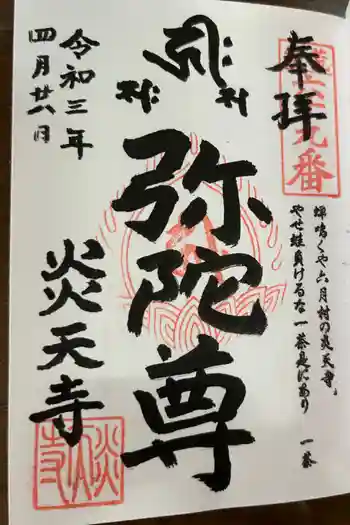 奉拝
蝉鳴くや六月村の炎天寺
やせ蛙負けるな一茶是にあり
一茶
弥陀尊
令和三年
四月廿八日
炎天寺